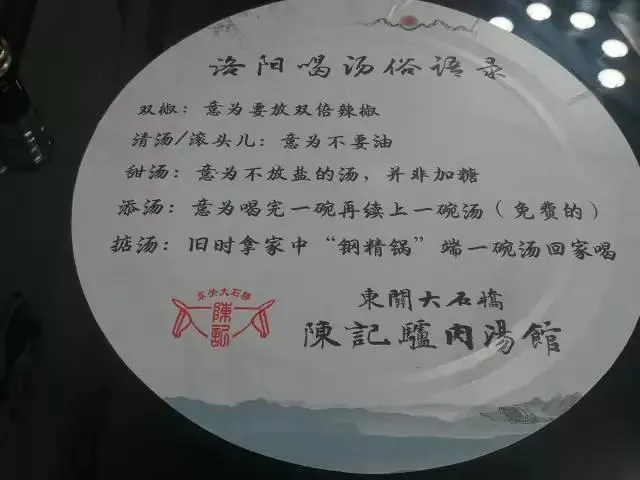 洛阳喝汤俗语录
双椒：意为要放双倍辣椒
清汤/滚头儿：意为不要油
甜汤：意为不放盐的汤，并非加糖
添汤：意为喝完一碗再续上一碗汤（免费的）
掂汤：旧时拿家中“钢精锅”端一碗汤回家喝
東關大石橋
陳記驢肉湯館
陳記